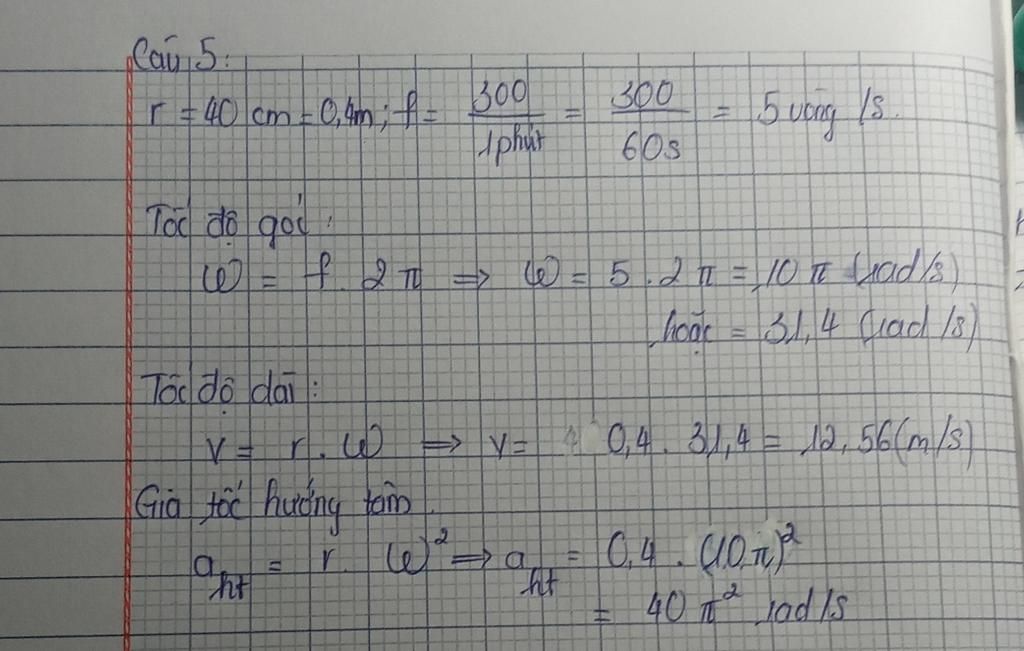 Câu 5:
r = 40 cm = 0,4m ; f = 300/1phút = 300/60s = 5 vòng /s.
Tốc độ góc :
ω = f. 2π ⇒ ω = 5 . 2π = 10π (rad/s)
hoặc = 31,4 (rad/s)
Tốc độ dài :
v = r . ω ⇒ v = 0,4 . 31,4 = 12,56 (m/s)
Gia tốc hướng tâm.
a_ht = r. ω² ⇒ a_ht = 0,4 . (10π)²
= 40π² rad/s